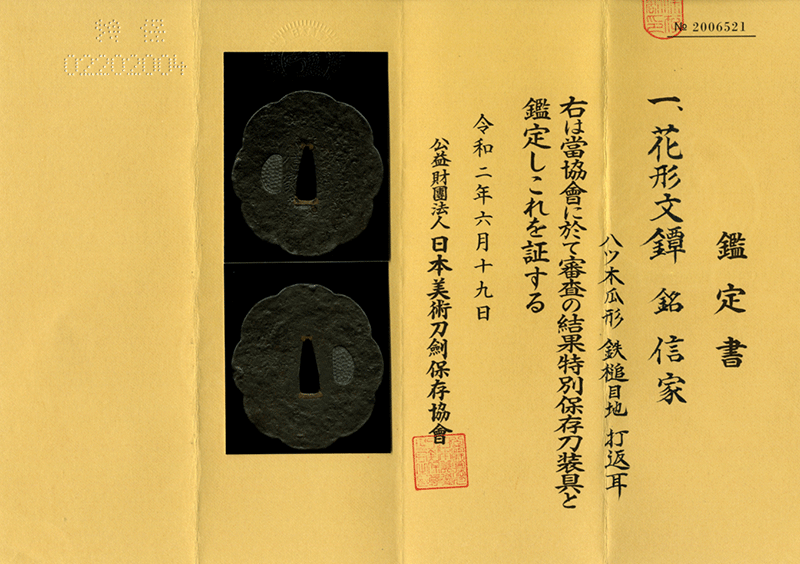 № 2006521
鑑定書
一、花形文鐔 銘 信家
八ツ木瓜形 鉄槌目地 打返耳
右は當協會に於て審査の結果特別保存刀装具と
鑑定しこれを証する
令和二年六月十九日
公益財團法人 日本美術刀劍保存協會
02202004